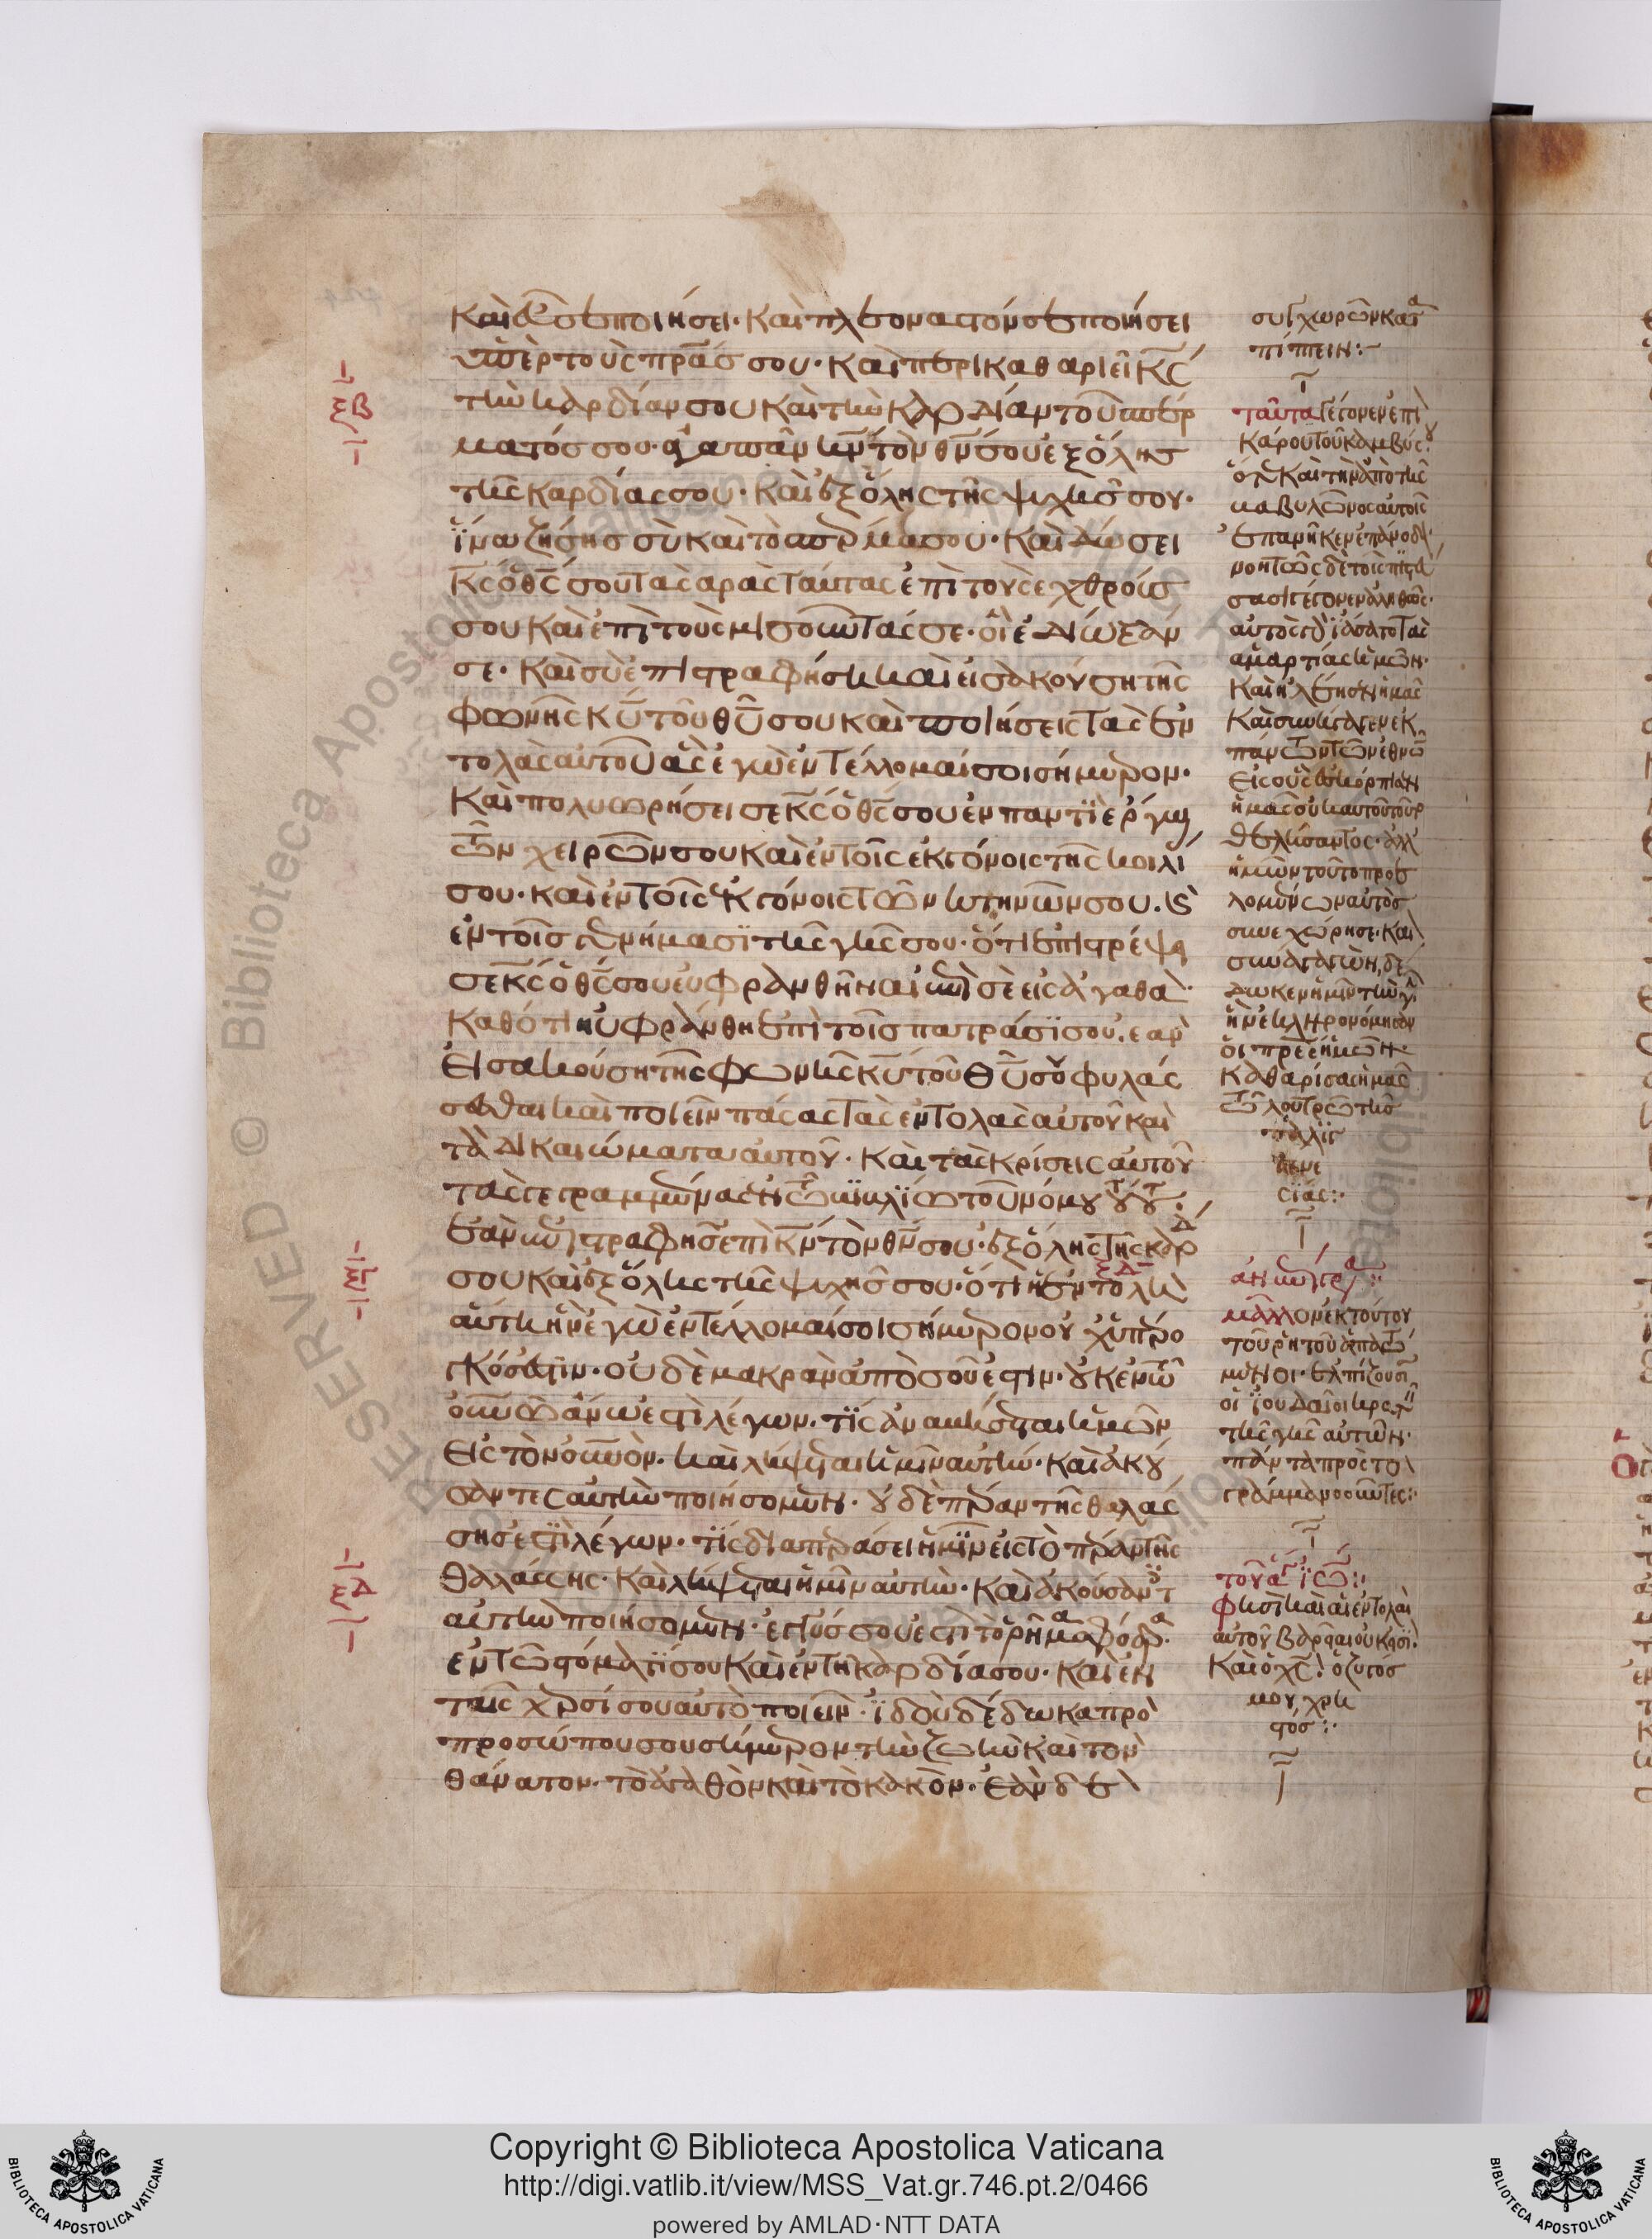 καὶ εὖ σε ποιήσει· καὶ πλεοναστόν σε ποιήσει
ὑπὲρ τοὺς πρ̅ας σου· καὶ περικαθαριεῖ κ̅ς
τὴν καρδίαν σου καὶ τὴν καρδίαν τοῦ σπέρ
ματός σου· ἀγαπᾶν κ̅ν τὸν θ̅ν σου ἐξ ὅλης
τῆς καρδίας σου· καὶ ἐξ ὅλης τῆς ψυχῆς σου·
ἵνα ζήσῃς σὺ καὶ τὸ σπέρμα σου· καὶ δώσει
κ̅ς ὁ θ̅ς σου τὰς ἀρὰς ταύτας ἐπὶ τοὺς ἐχθρούς
σου καὶ ἐπὶ τοὺς μισοῦντάς σε· οἳ ἐδίωξάν
σε· καὶ σὺ ἐπιστραφήσῃ καὶ εἰσακούσῃ τῆς
φωνῆς κ̅υ τοῦ θ̅υ σου καὶ ποιήσεις τὰς ἐν
τολὰς αὐτοῦ ἃς ἐγὼ ἐντέλλομαί σοι σήμερον·
καὶ πολυωρήσει σε κ̅ς ὁ θ̅ς σου ἐν παντὶ ἔργῳ
τῶν χειρῶν σου καὶ ἐν τοῖς ἐκγόνοις τῆς κοιλί
σου· καὶ ἐν τοῖς ἐκγόνοις τῶν κτηνῶν σου· καὶ
ἐν τοῖς γενήμασι τῆς γῆς σου· ὅτι ἐπιστρέψει
σε κ̅ς ὁ θ̅ς σου εὐφρανθῆναι ἐπὶ σὲ εἰς ἀγαθά·
καθότι ηὐφράνθη ἐπὶ τοῖς πατράσι σου· ἐὰν
εἰσακούσῃ τῆς φωνῆς κ̅υ τοῦ θ̅υ σου φυλάς
σεσθαι καὶ ποιεῖν πάσας τὰς ἐντολὰς αὐτοῦ καὶ
τὰ δικαιώματα αὐτοῦ· καὶ τὰς κρίσεις αὐτοῦ
τὰς γεγραμμένας ἐν τῷ βιβλίῳ τοῦ νόμου τούτου·
ἐὰν ἐπιστραφῇς ἐπὶ κ̅ν τὸν θ̅ν σου· ἐξ ὅλης τῆς καρδ
σου καὶ ἐξ ὅλης τῆς ψυχῆς σου· ὅτι ἡ ἐντολὴ
αὕτη ἣν ἐγὼ ἐντέλλομαί σοι σήμερον οὐχ ὑπέρο
γκός ἐστιν· οὐδὲ μακρὰν ἀπὸ σοῦ ἐστιν· οὐκ ἐν τῷ
οὐ̅νῷ ἄνω ἐστὶ λέγων· τίς ἀναβήσεται ἡμῶν
εἰς τὸν οὐ̅νόν· καὶ λήψεται ἡμῖν αὐτήν· καὶ ἀκού
σαντες αὐτὴν ποιήσομεν· οὐδὲ πέραν τῆς θαλάς
σης ἐστὶ λέγων· τίς διαπεράσει ἡμῖν εἰς τὸ πέραν τῆς
θαλάσσης· καὶ λήψεται ἡμῖν αὐτήν· καὶ ἀκούσαντ
αὐτὴν ποιήσομεν· ἐγγύς σου ἐστὶ τὸ ῥῆμα σφόδρα·
ἐν τῷ στόματί σου καὶ ἐν τῇ καρδίᾳ σου· καὶ ἐν
ταῖς χερσί σου αὐτὸ ποιεῖν· ἰδοὺ δέδωκα πρὸ
προσώπου σου σήμερον τὴν ζωὴν καὶ τὸν
θάνατον· τὸ ἀγαθὸν καὶ τὸ κακόν· ἐὰν δὲ
ξβ
ξγ
ξδ
ξδ
συγχωρῶν κατα
πίπτειν:
ταῦτα γέγονεν ἐπὶ
κύρου τοῦ
καὶ τὴν ἀπὸ τῆς
βαβυλῶνος αὐτοῖς
ἀληθῶς·
αὐτὸς ἰάσατο τὰς
ἁμαρτίας ἡμῶν·
καὶ ἠλέησεν ἡμᾶς
καὶ συνήγαγεν ἐκ
πάντων τῶν ἐθνῶν
εἰς οὓς ἐσκόρπισεν
ἡμᾶς οὐκ αὐτοῦ τοῦτο
θελήσαντος· ἀλλ
ἡμῶν τοῦτο προε
λομένων αὐτὸς
συνεχώρησε· καὶ
συναγαγὼν, δέ
δωκεν ἡμῖν τὴν γῆν
ἣν ἐκληρονόμησαν
οἱ πρ̅ες ἡμῶν·
καθαρίσας ἡμᾶς
τῷ λουτρῷ τῆς
παλιγ
γενε
σίας:
μᾶλλον ἐκ τούτου
τοῦ ῥητοῦ ἀπατώ
μενοι· ἐλπίζουσιν
οἱ ἰουδαῖοι κρατεῖν
τῆς γῆς αὐτῶν·
πάντα πρὸς τὸ
γράμμα νοοῦντες:
φησὶ καὶ αἱ ἐντολαὶ
αὐτοῦ βαρεῖαι οὐκ εἰσί·
καὶ ὁ χ̅ς· ὁ ζυγός
μου χρη
στός:
Copyright © Biblioteca Apostolica Vaticana
http://digi.vatlib.it/view/MSS_Vat.gr.746.pt.2/0466
powered by AMLAD·NTT DATA
BIBLIOTECA APOSTOLICA VATICANA
BIBLIOTECA APOSTOLICA VATICANA